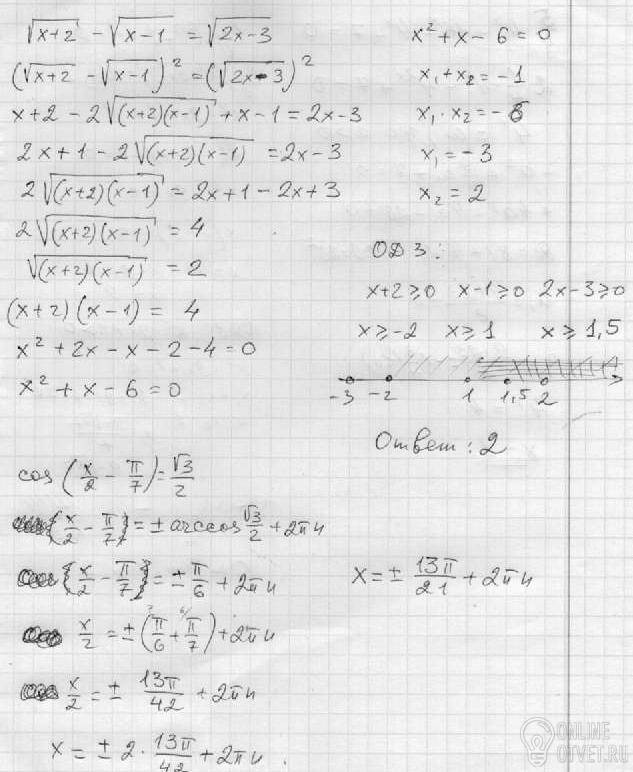 √(x+2) - √(x-1) = √(2x-3)
(√(x+2) - √(x-1))² = (√(2x-3))²
x+2 - 2√((x+2)(x-1)) + x-1 = 2x-3
2x+1 - 2√((x+2)(x-1)) = 2x-3
2√((x+2)(x-1)) = 2x+1-2x+3
2√((x+2)(x-1)) = 4
√((x+2)(x-1)) = 2
(x+2)(x-1) = 4
x²+2x-x-2-4=0
x²+x-6=0
x²+x-6=0
x₁+x₂=-1
x₁·x₂=-6
x₁=-3
x₂=2
ОДЗ:
x+2≥0 x-1≥0 2x-3≥0
x≥-2 x≥1 x≥1,5
-3 -2 1 1,5 2
Ответ: 2
cos(x/2 - π/7)=√3/2
{x/2 - π/7}=± arccos √3/2 + 2πn
{x/2 - π/7}=± π/6 + 2πn
x/2 = ±(π/6 + π/7)+2πn
x/2 = ± 13π/42 + 2πn
x = ± 2 · 13π/42 + 2πn.
x = ± 13π/21 + 2πn
ONLINE
OTVET.RU